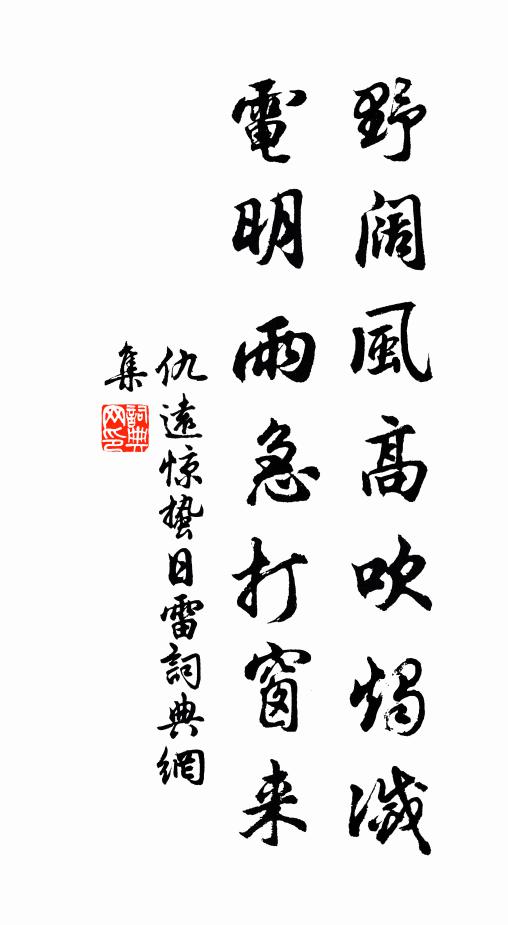 野阔風高吹燭滅
電明雨急打窗来
仇遠惊蛰日雷詞典網
集
詞典网印